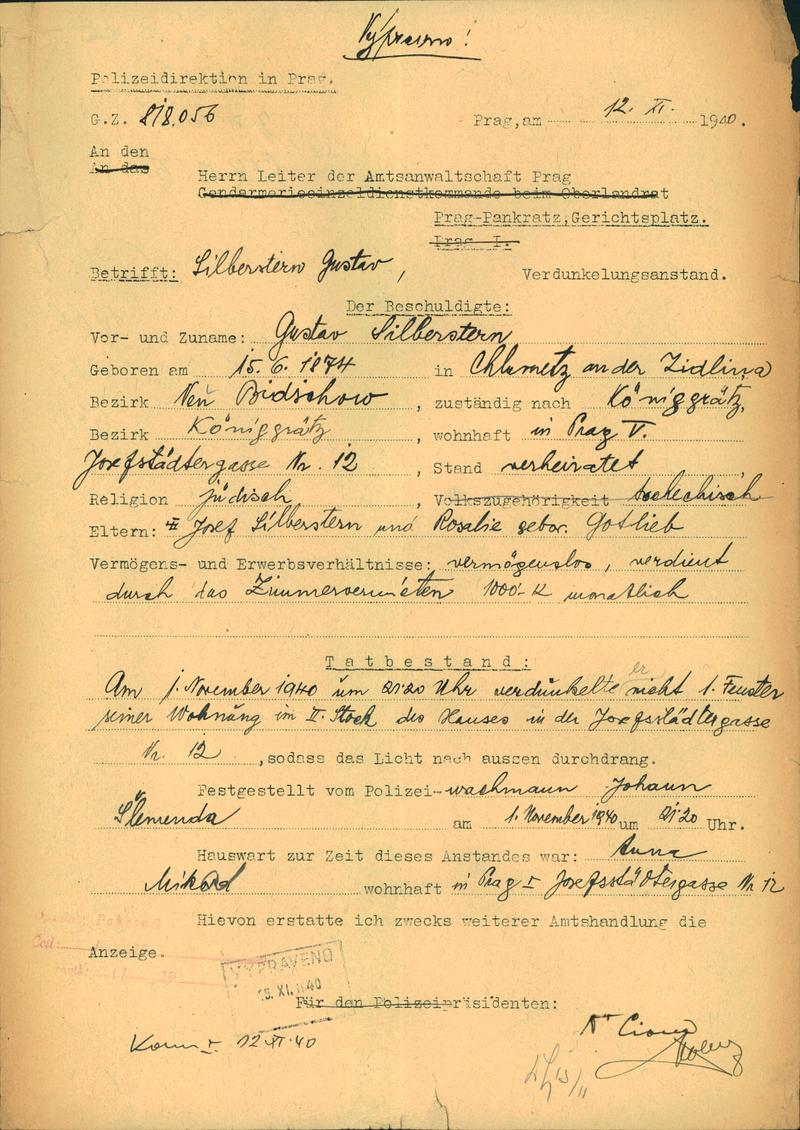 Vypraveno!
Polizeidirektion in Prag.
G.Z. 818.056
Prag, am 12. XI. 1940.
An den
An das
Herrn Leiter der Amtsanwaltschaft Prag
Gendarmerieeinzeldienstkommando beim Oberlandrat
Prag-Pankratz, Gerichtsplatz.
Prag I.
Betrifft: Silberstern Gustav, Verdunkelungsanstand.
Der Beschuldigte:
Vor- und Zuname: Gustav Silberstern
Geboren am 15. 6. 1874 in Chlumetz an der Zidlina
Bezirk Neu Bidschow, zuständig nach Königgrätz,
Bezirk Königgrätz, wohnhaft in Prag V.
Josefstädtergasse Nr. 12, Stand verheiratet
Religion jüdisch, Volkszugehörigkeit tschechisch
Eltern: Josef Silberstern und Rosalie gebor. Gotlieb
Vermögens- und Erwerbsverhältnisse: vermögenslos, verdient
durch das Zimmervermieten 1000.- K monatlich
Tatbestand:
Am 1. November 1940 um 21·20 Uhr verdunkelte er nicht 1. Fenster
seiner Wohnung im II. Stock des Hauses in der Josefsstädtergasse
Nr. 12, sodass das Licht nach aussen durchdrang.
Festgestellt vom Polizei-wachmann Johann
Slemenda am 1. November 1940 um 21·20 Uhr.
Hauswart zur Zeit dieses Anstandes war: Anna
wohnhaft in Prag V Josefsstädtergasse Nr 12
Hievon erstatte ich zwecks weiterer Amtshandlung die
Anzeige.
VYPRAVENO
XI. 1940
Für den Polizeipräsidenten:
12. XI. 40